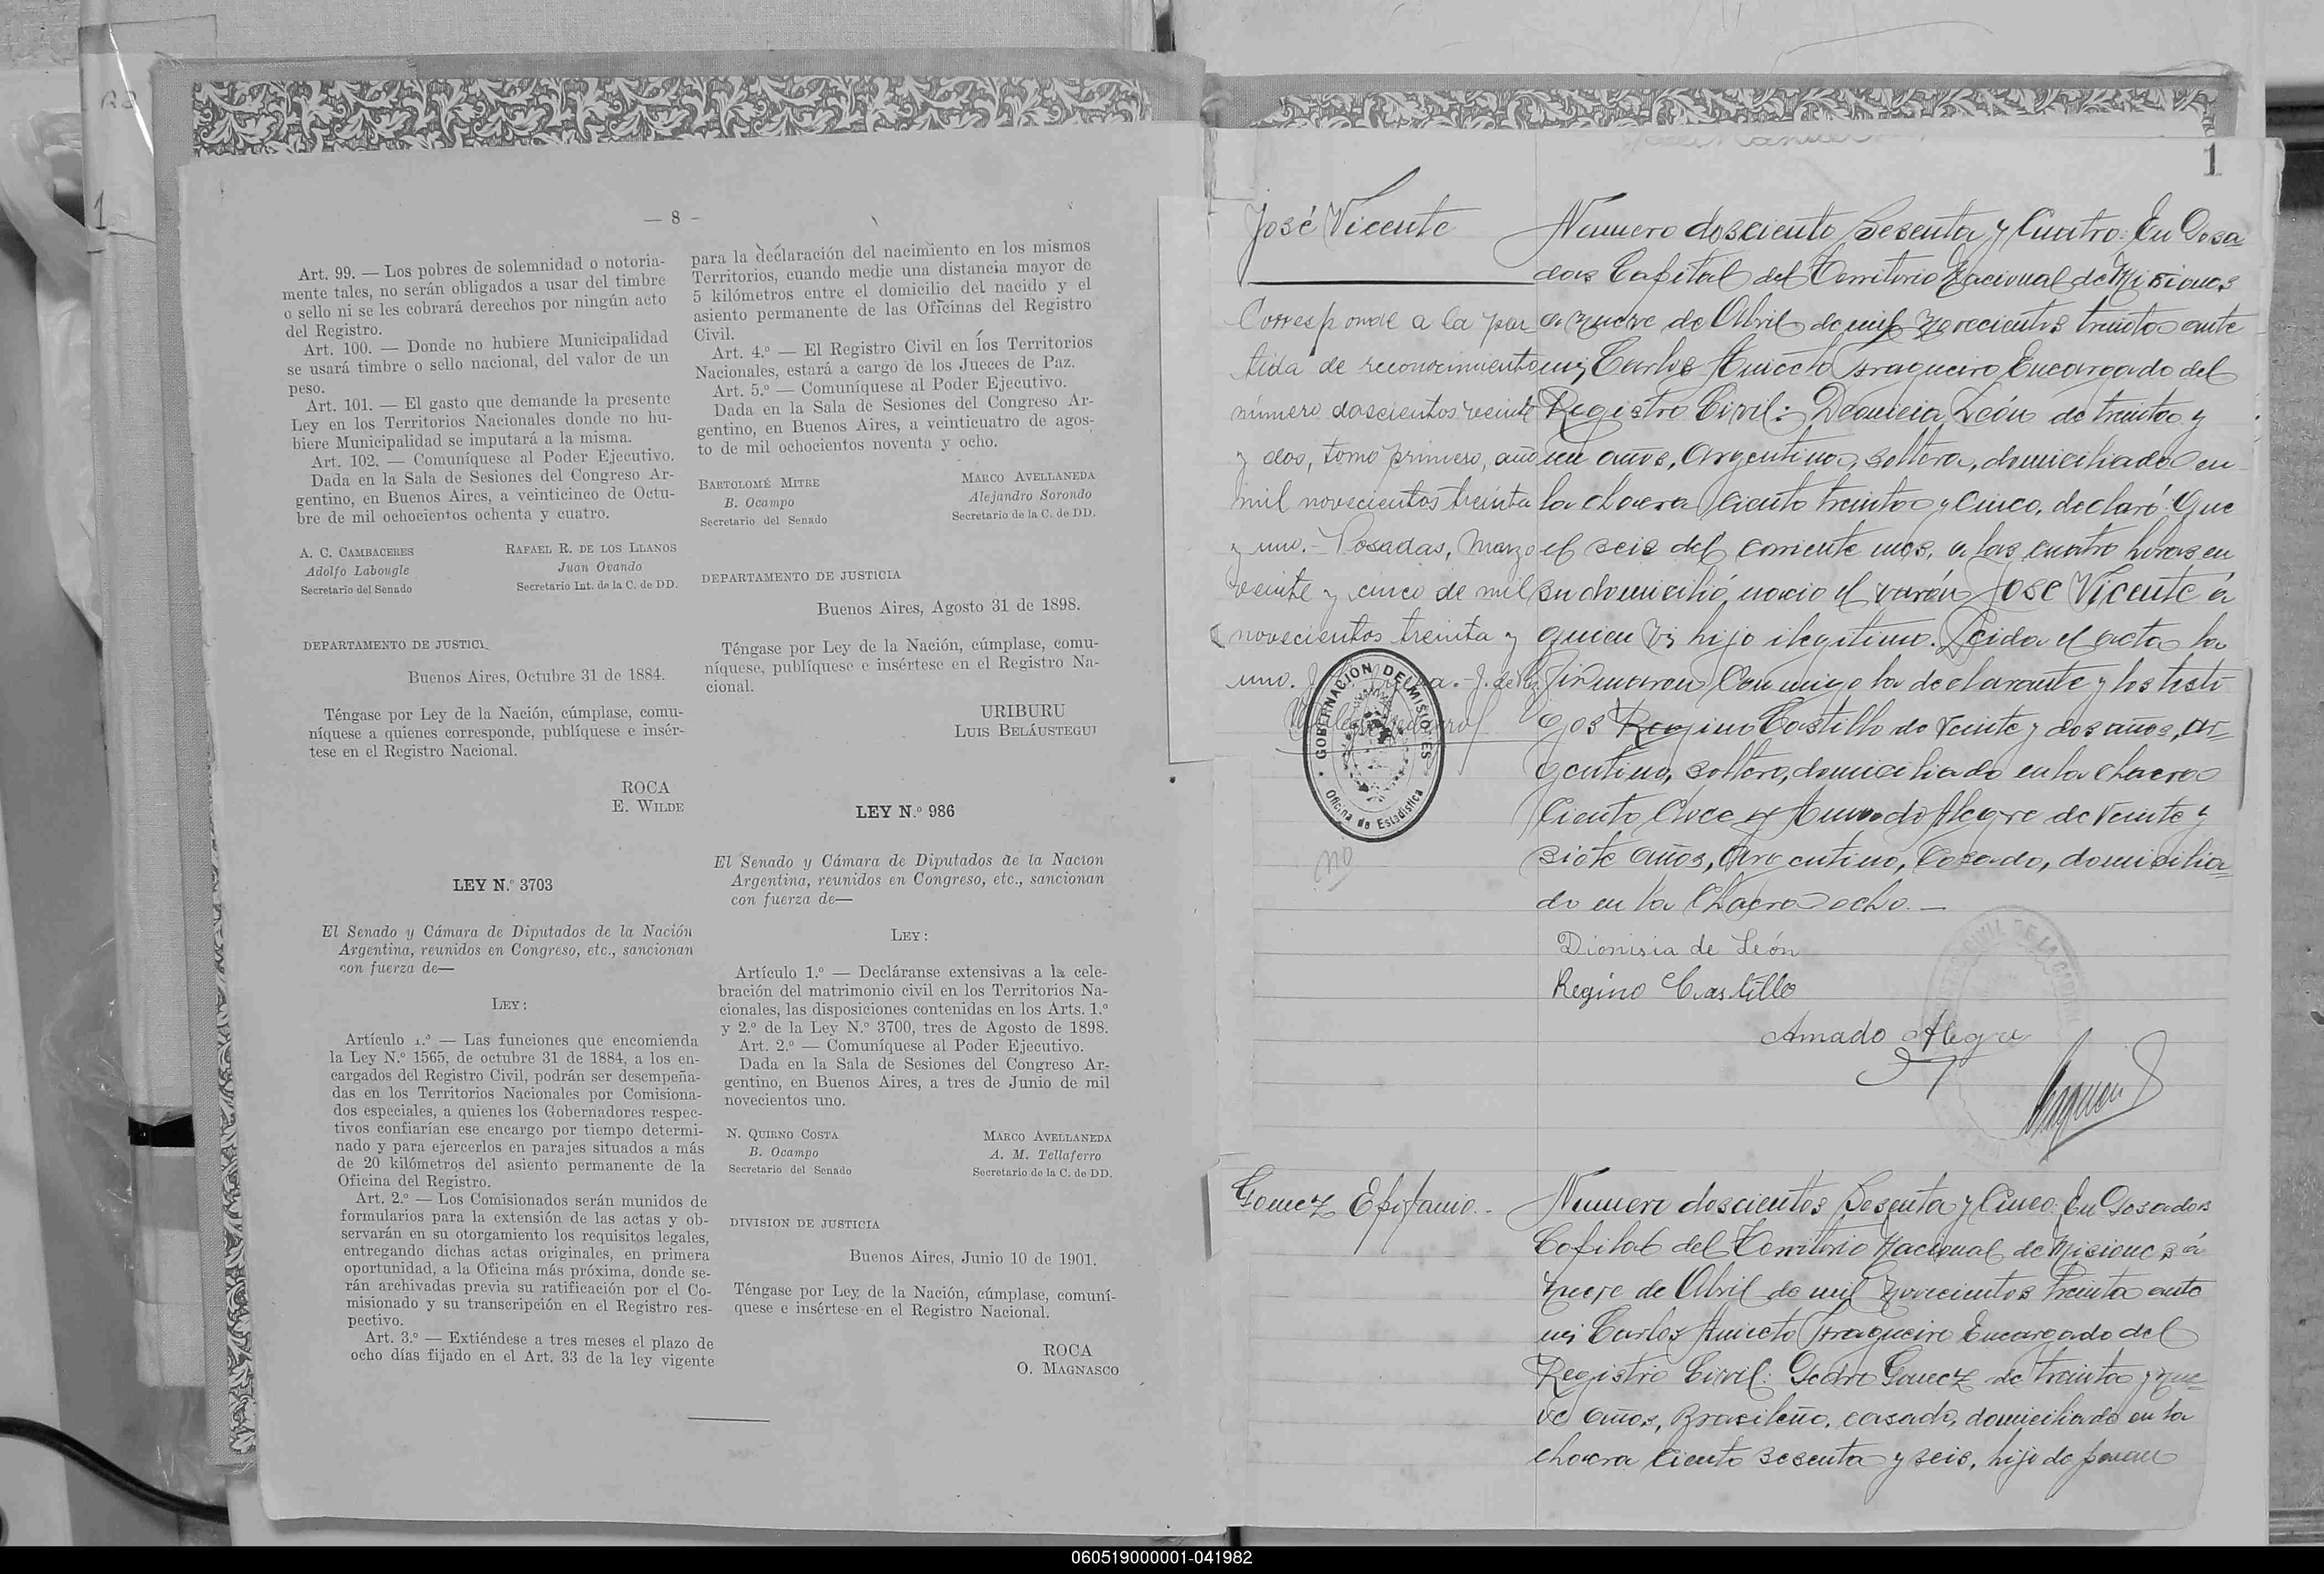 — 8 —
Art. 99. — Los pobres de solemnidad o notoria-
mente tales, no serán obligados a usar del timbre
o sello ni se les cobrará derechos por ningún acto
del Registro.
Art. 100. — Donde no hubiere Municipalidad
se usará timbre o sello nacional, del valor de un
peso.
Art. 101. — El gasto que demande la presente
Ley en los Territorios Nacionales donde no hu-
biere Municipalidad se imputará a la misma.
Art. 102. — Comuníquese al Poder Ejecutivo.
Dada en la Sala de Sesiones del Congreso Ar-
gentino, en Buenos Aires, a veinticinco de Octu-
bre de mil ochocientos ochenta y cuatro.
A. C. CAMBACERES RAFAEL R. DE LOS LLANOS
Adolfo Labougle Juan Ovando
Secretario del Senado Secretario Int. de la C. de DD.
DEPARTAMENTO DE JUSTICI
Buenos Aires, Octubre 31 de 1884.
Téngase por Ley de la Nación, cúmplase, comu-
níquese a quienes corresponde, publíquese e insér-
tese en el Registro Nacional.
ROCA
E. WILDE
LEY N.º 3703
El Senado y Cámara de Diputados de la Nación
Argentina, reunidos en Congreso, etc., sancionan
con fuerza de—
LEY:
Artículo 1.º — Las funciones que encomienda
la Ley N.º 1565, de octubre 31 de 1884, a los en-
cargados del Registro Civil, podrán ser desempeña-
das en los Territorios Nacionales por Comisiona-
dos especiales, a quienes los Gobernadores respec-
tivos confiarían ese encargo por tiempo determi-
nado y para ejercerlos en parajes situados a más
de 20 kilómetros del asiento permanente de la
Oficina del Registro.
Art. 2.º — Los Comisionados serán munidos de
formularios para la extensión de las actas y ob-
servarán en su otorgamiento los requisitos legales,
entregando dichas actas originales, en primera
oportunidad, a la Oficina más próxima, donde se-
rán archivadas previa su ratificación por el Co-
misionado y su transcripción en el Registro res-
pectivo.
Art. 3.º — Extiéndese a tres meses el plazo de
ocho días fijado en el Art. 33 de la ley vigente
para la declaración del nacimiento en los mismos
Territorios, cuando medie una distancia mayor de
5 kilómetros entre el domicilio del nacido y el
asiento permanente de las Oficinas del Registro
Civil.
Art. 4.º — El Registro Civil en los Territorios
Nacionales, estará a cargo de los Jueces de Paz.
Art. 5.º — Comuníquese al Poder Ejecutivo.
Dada en la Sala de Sesiones del Congreso Ar-
gentino, en Buenos Aires, a veinticuatro de agos-
to de mil ochocientos noventa y ocho.
BARTOLOMÉ MITRE MARCO AVELLANEDA
B. Ocampo Alejandro Sorondo
Secretario del Senado Secretario de la C. de DD.
DEPARTAMENTO DE JUSTICIA
Buenos Aires, Agosto 31 de 1898.
Téngase por Ley de la Nación, cúmplase, comu-
níquese, publíquese e insértese en el Registro Na-
cional.
URIBURU
LUIS BELÁUSTEGUI
LEY N.º 986
El Senado y Cámara de Diputados de la Nacion
Argentina, reunidos en Congreso, etc., sancionan
con fuerza de—
LEY:
Artículo 1.º — Decláranse extensivas a la cele-
bración del matrimonio civil en los Territorios Na-
cionales, las disposiciones contenidas en los Arts. 1.º
y 2.º de la Ley N.º 3700, tres de Agosto de 1898.
Art. 2.º — Comuníquese al Poder Ejecutivo.
Dada en la Sala de Sesiones del Congreso Ar-
gentino, en Buenos Aires, a tres de Junio de mil
novecientos uno.
N. QUIRNO COSTA MARCO AVELLANEDA
B. Ocampo A. M. Tellaferro
Secretario del Senado Secretario de la C. de DD.
DIVISION DE JUSTICIA
Buenos Aires, Junio 10 de 1901.
Téngase por Ley de la Nación, cúmplase, comuní-
quese e insértese en el Registro Nacional.
ROCA
O. MAGNASCO
1
José Vicente
Corresponde a la par
tida de reconocimiento
número doscientos veinte
y dos, tomo primero, año
mil novecientos treinta
y uno.- Posadas, Marzo
veinte y cinco de mil
novecientos treinta y
uno.
GOBERNACION DE MISIONES
Oficina de Estadística
no
Numero dosciento Sesenta y Cuatro: En Posa
das Capital del Territorio Nacional de Misiones
a nueve de Abril de mil novecientos treinta ante
mi, Carlos Aniceto Fragueiro Encargado del
Registro Civil: Dionicia León de treinta y
un años, Argentina, soltera, domiciliada en
la chacra ciento treinta y cinco, declaró: Que
el seis del corriente mes, a las cuatro horas en
su domicilió, nacio el varón José Vicente á
quien vi, hijo ilegitimo. Leida el acta la
firmaron Conmigo la declarante y los testi
gos Regino Castillo de veinte y dos años, ar=
gentino, soltero, domiciliado en la chacra
Ciento Once y Amado Alegre de veinte y
siete años, Argentino, Casado, domicilia=
do en la Chacra ocho.—
Dionisia de León
Regino Castillo
Amado Alegre
Gomez Epifanio.-
Numero doscientos Sesenta y Cinco: En Posadas
Capital del Territorio Nacional de Misiones á
nueve de Abril de mil novecientos treinta ante
mi, Carlos Aniceto Fragueiro Encargado del
Registro Civil: Pedro Gomez de treinta y nue=
ve años, Brasileño, casado, domiciliado en la
chacra Ciento sesenta y seis, hijo de
060519000001-041982